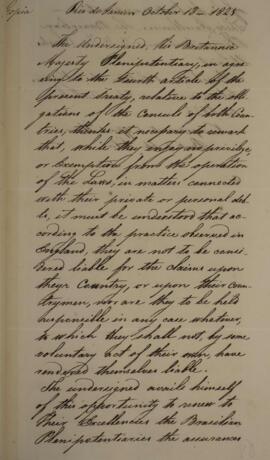 Copia Rio de Janeiro October 18th 1825
The Undersigned, His Britannic
Majesty Plenipotentiary, in agree
ing to the fourth article of the
present treaty, relative to the obli
gations of the Consuls of both Coun
tries, thinks it necessary to remark
that, while they enjoy no privilege
or Exemption from the operation
of the Laws, in matters connected
with their private or personal deb
ts, it must be understood that ac
cording to the practice observed in
England, they are not to be consi
dered liable for the claims upon
their Country, or upon their Coun
trymen, nor are they to be held
responsible in any case whatever,
to which they shall not, by some
voluntary act of their own, have
rendered themselves liable.
The undersigned avails himself
of this opportunity to renew to
Their Excellencies the Brasilian
Plenipotentiaries the assurances